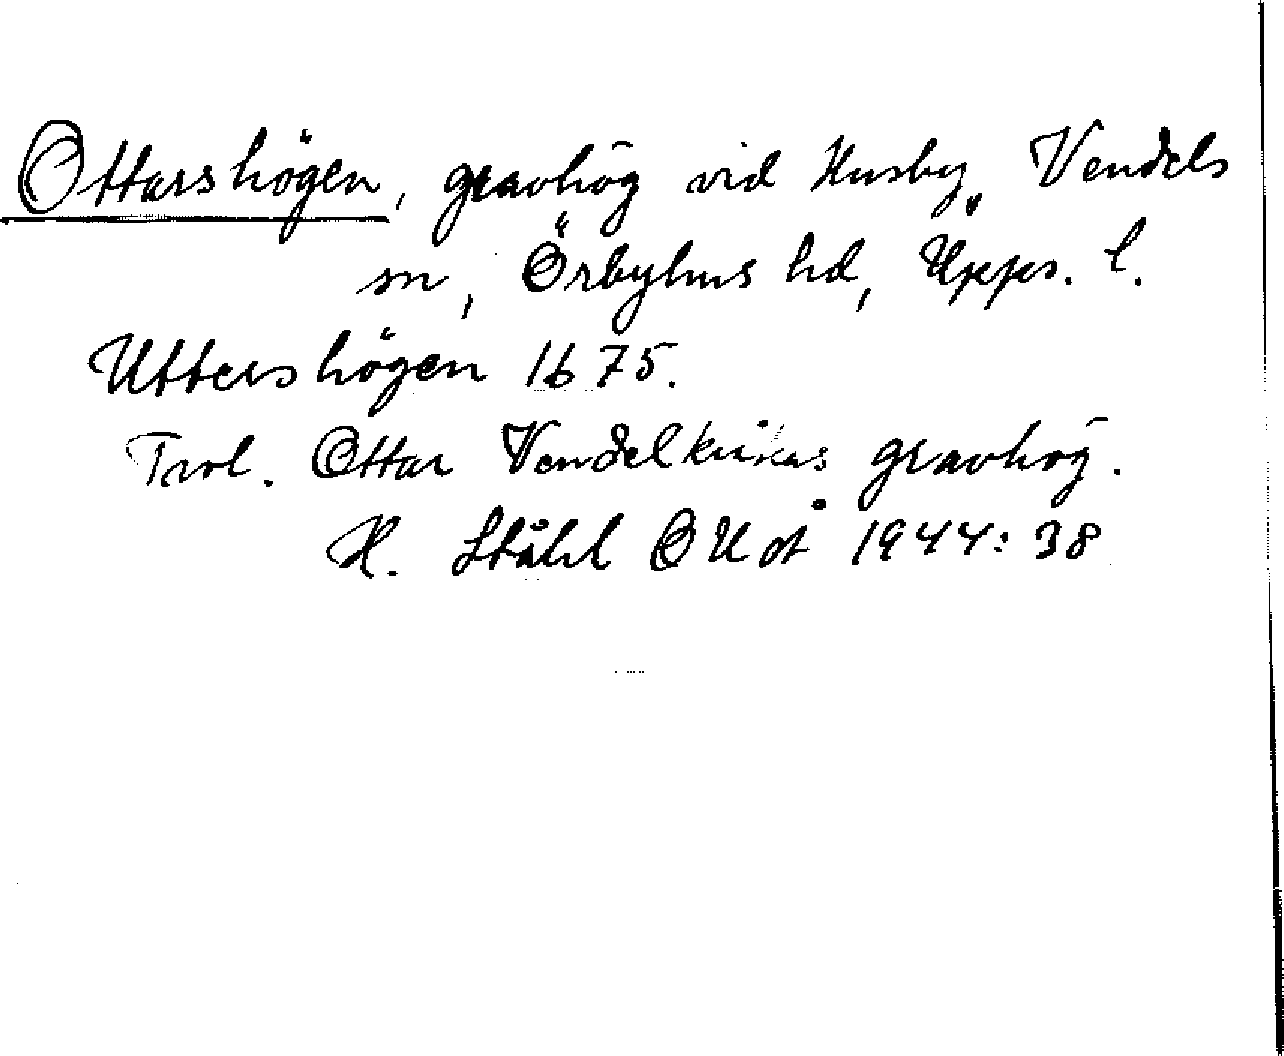 Ottarshögen, gravhög vid Husby, Vendels
sn, Örbyhus hd, Upps. l.
Uttershögen 1675.
Trol. Ottar Vendelkråkas gravhög.
H. Ståhl OUÅ 1944: 38